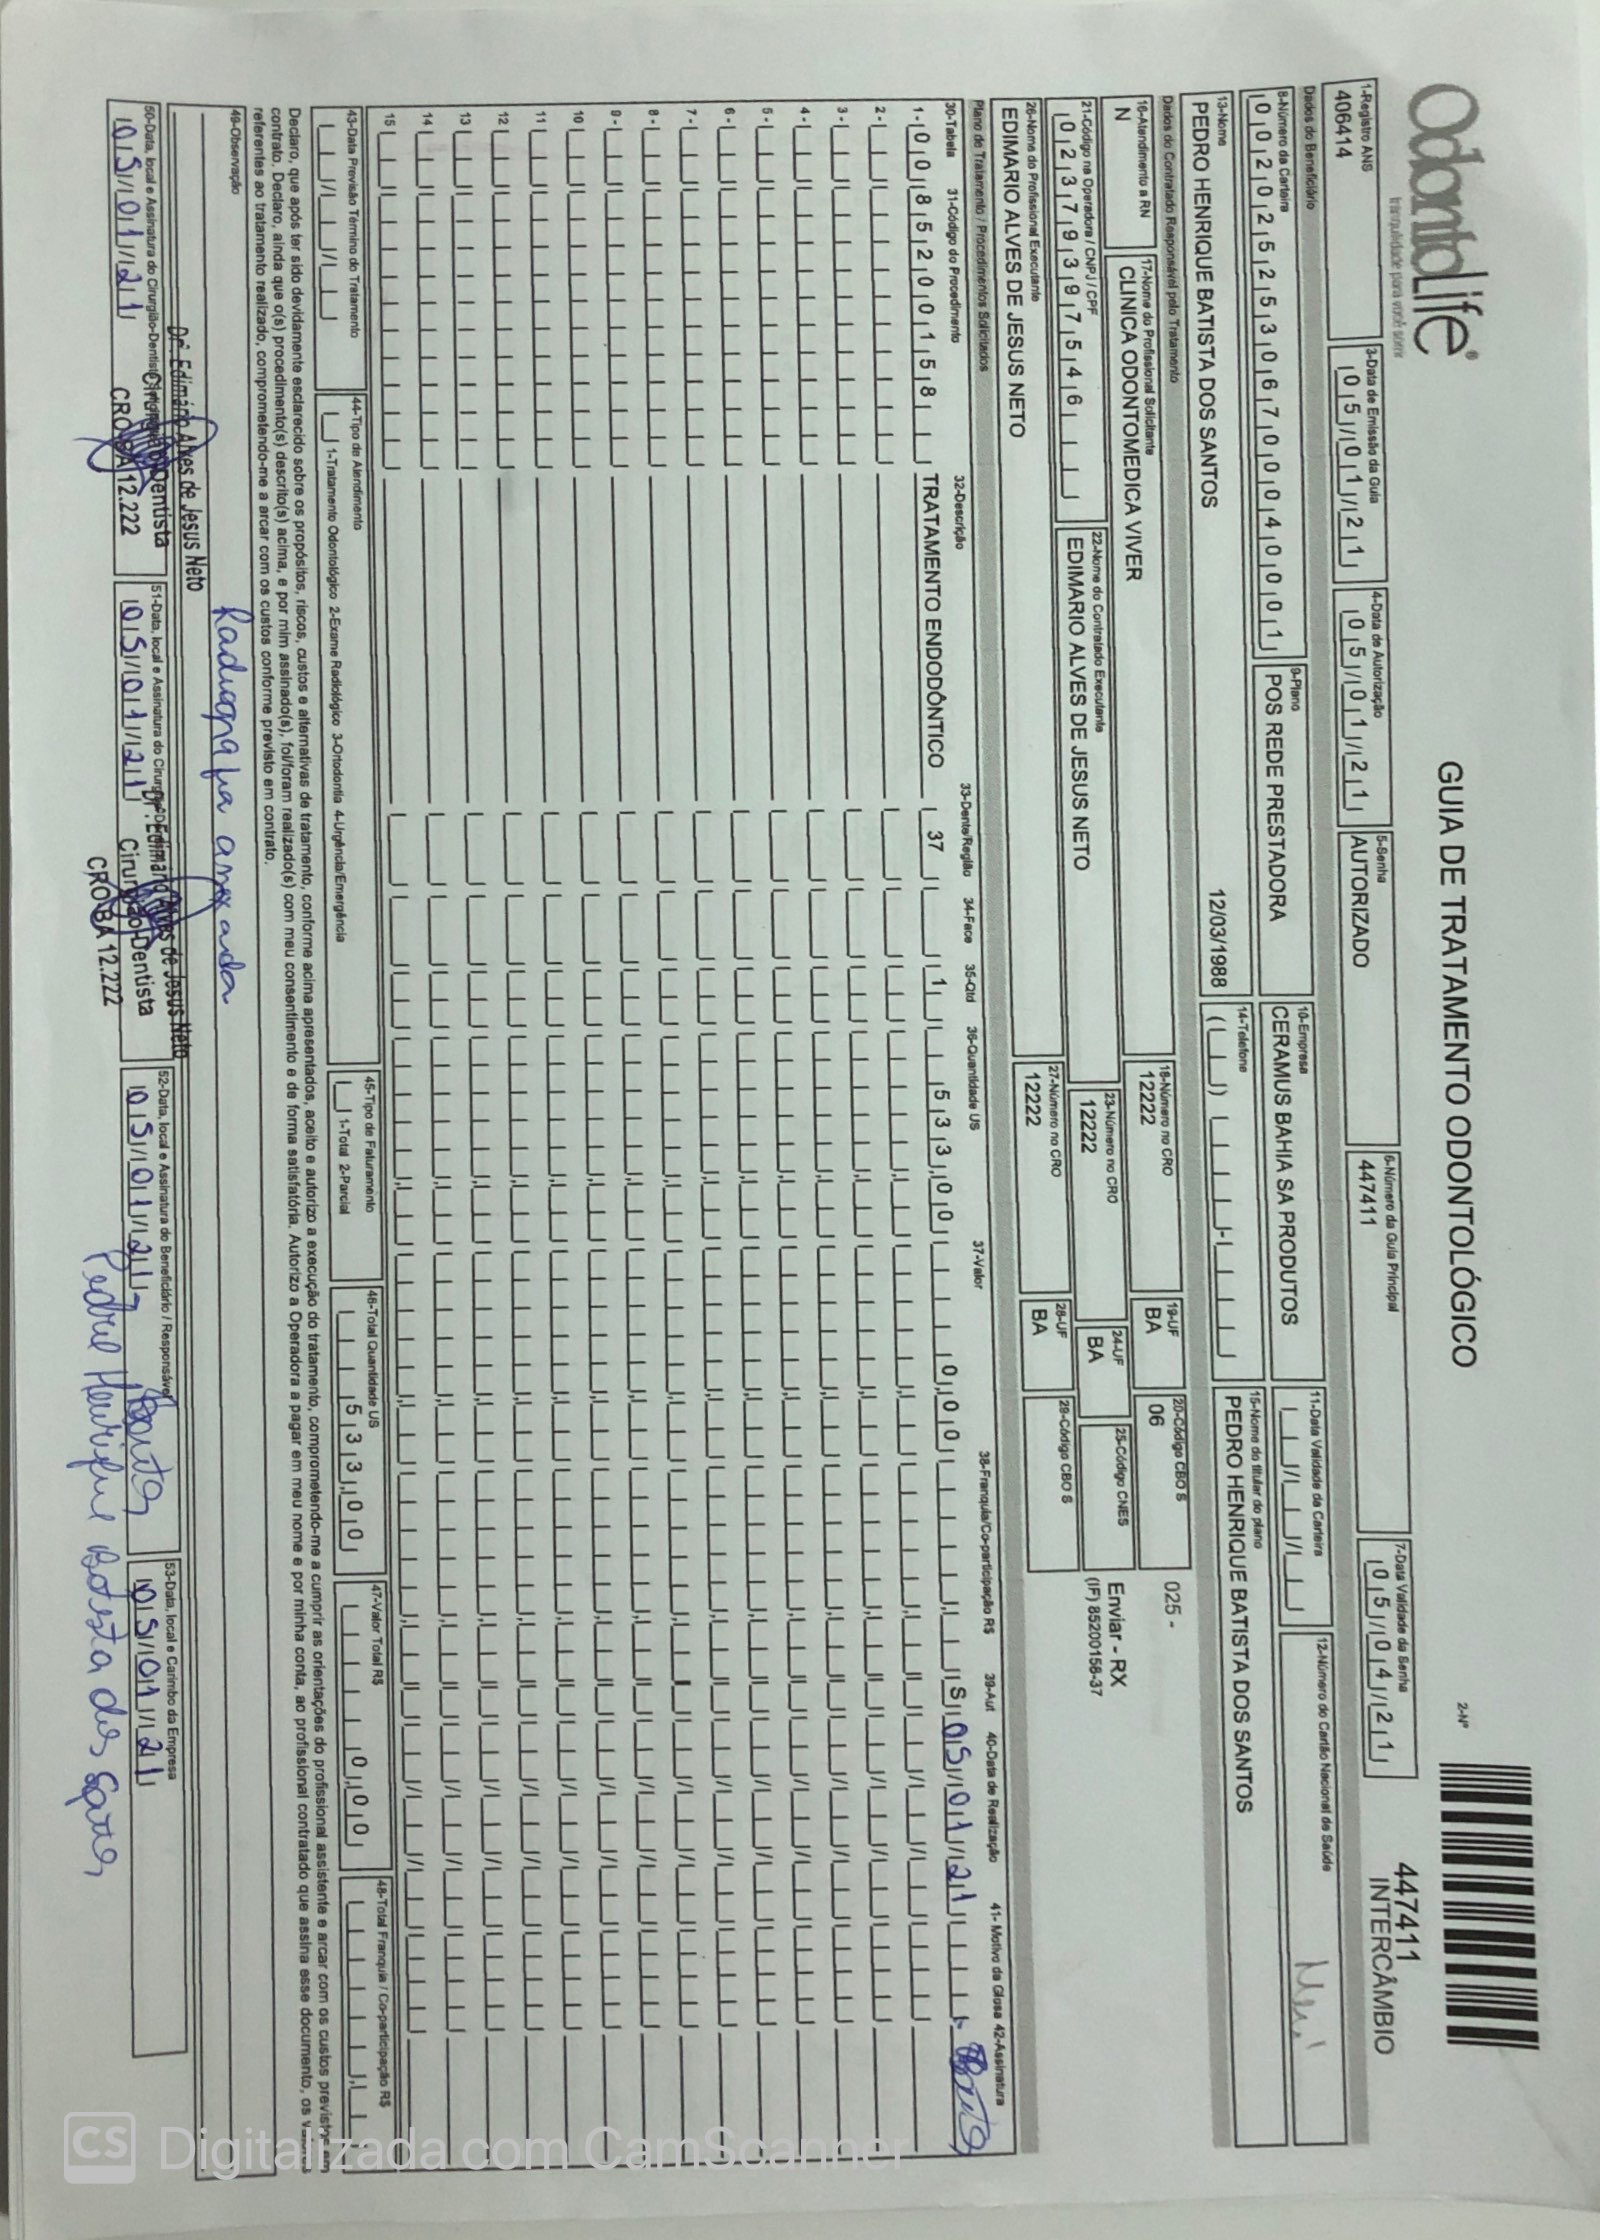 OdontoLife®
tranquilidade para você sorrir
GUIA DE TRATAMENTO ODONTOLÓGICO
2-Nº
447411
INTERCÂMBIO
1-Registro ANS
406414
3-Data de Emissão da Guia
05/01/21
4-Data de Autorização
05/01/21
5-Senha
AUTORIZADO
6-Número da Guia Principal
447411
7-Data Validade da Senha
05/04/21
Dados do Beneficiário
8-Número da Carteira
00202525306700040001
9-Plano
POS REDE PRESTADORA
10-Empresa
CERAMUS BAHIA SA PRODUTOS
11-Data Validade da Carteira
12-Número do Cartão Nacional de Saúde
13-Nome
PEDRO HENRIQUE BATISTA DOS SANTOS
12/03/1988
14-Telefone
15-Nome do titular do plano
PEDRO HENRIQUE BATISTA DOS SANTOS
Dados do Contratado Responsável pelo Tratamento
16-Atendimento a RN
N
17-Nome do Profissional Solicitante
CLINICA ODONTOMEDICA VIVER
18-Número no CRO
12222
19-UF
BA
20-Código CBO S
06
025 -
21-Código na Operadora / CNPJ / CPF
02379397546
22-Nome do Contratado Executante
EDIMARIO ALVES DE JESUS NETO
23-Número no CRO
12222
24-UF
BA
25-Código CNES
Enviar - RX
(IF) 85200158-37
26-Nome do Profissional Executante
EDIMARIO ALVES DE JESUS NETO
27-Número no CRO
12222
28-UF
BA
29-Código CBO S
Plano de Tratamento / Procedimentos Solicitados
30-Tabela 31-Código do Procedimento 32-Descrição 33-Dente/Região 34-Face 35-Qtd 36-Quantidade US 37-Valor 38-Franquia/Co-participação R$ 39-Aut 40-Data de Realização 41- Motivo da Glosa 42-Assinatura
1- 00 85200158 TRATAMENTO ENDODÔNTICO 37 1 533,00 0,00 S 05/01/21
2-
3-
4-
5-
6-
7-
8-
9-
10
11
12
13
14
15
43-Data Previsão Término do Tratamento
44-Tipo de Atendimento
1-Tratamento Odontológico 2-Exame Radiológico 3-Ortodontia 4-Urgência/Emergência
45-Tipo de Faturamento
1-Total 2-Parcial
46-Total Quantidade US
533,00
47-Valor Total R$
0,00
48-Total Franquia / Co-participação R$
Declaro, que após ter sido devidamente esclarecido sobre os propósitos, riscos, custos e alternativas de tratamento, conforme acima apresentados, aceito e autorizo a execução do tratamento, comprometendo-me a cumprir as orientações do profissional assistente e arcar com os custos previstos em
contrato. Declaro, ainda que o(s) procedimento(s) descrito(s) acima, e por mim assinado(s), foi/foram realizado(s) com meu consentimento e de forma satisfatória. Autorizo a Operadora a pagar em meu nome e por minha conta, ao profissional contratado que assina esse documento, os
referentes ao tratamento realizado, comprometendo-me a arcar com os custos conforme previsto em contrato.
49-Observação
Radiografia anexada
50-Data, local e Assinatura do Cirurgião-Dentista
05/01/21
Drº. Edimário Alves de Jesus Neto
Cirurgião-Dentista
CRO BA 12.222
51-Data, local e Assinatura do Cirurgião-Dentista
05/01/21
Drº. Edimário Alves de Jesus Neto
Cirurgião-Dentista
CRO BA 12.222
52-Data, local e Assinatura do Beneficiário / Responsável
05/01/21
Pedro Henrique Batista dos Santos
53-Data, local e Carimbo da Empresa
05/01/21
CS Digitalizada com CamScanner